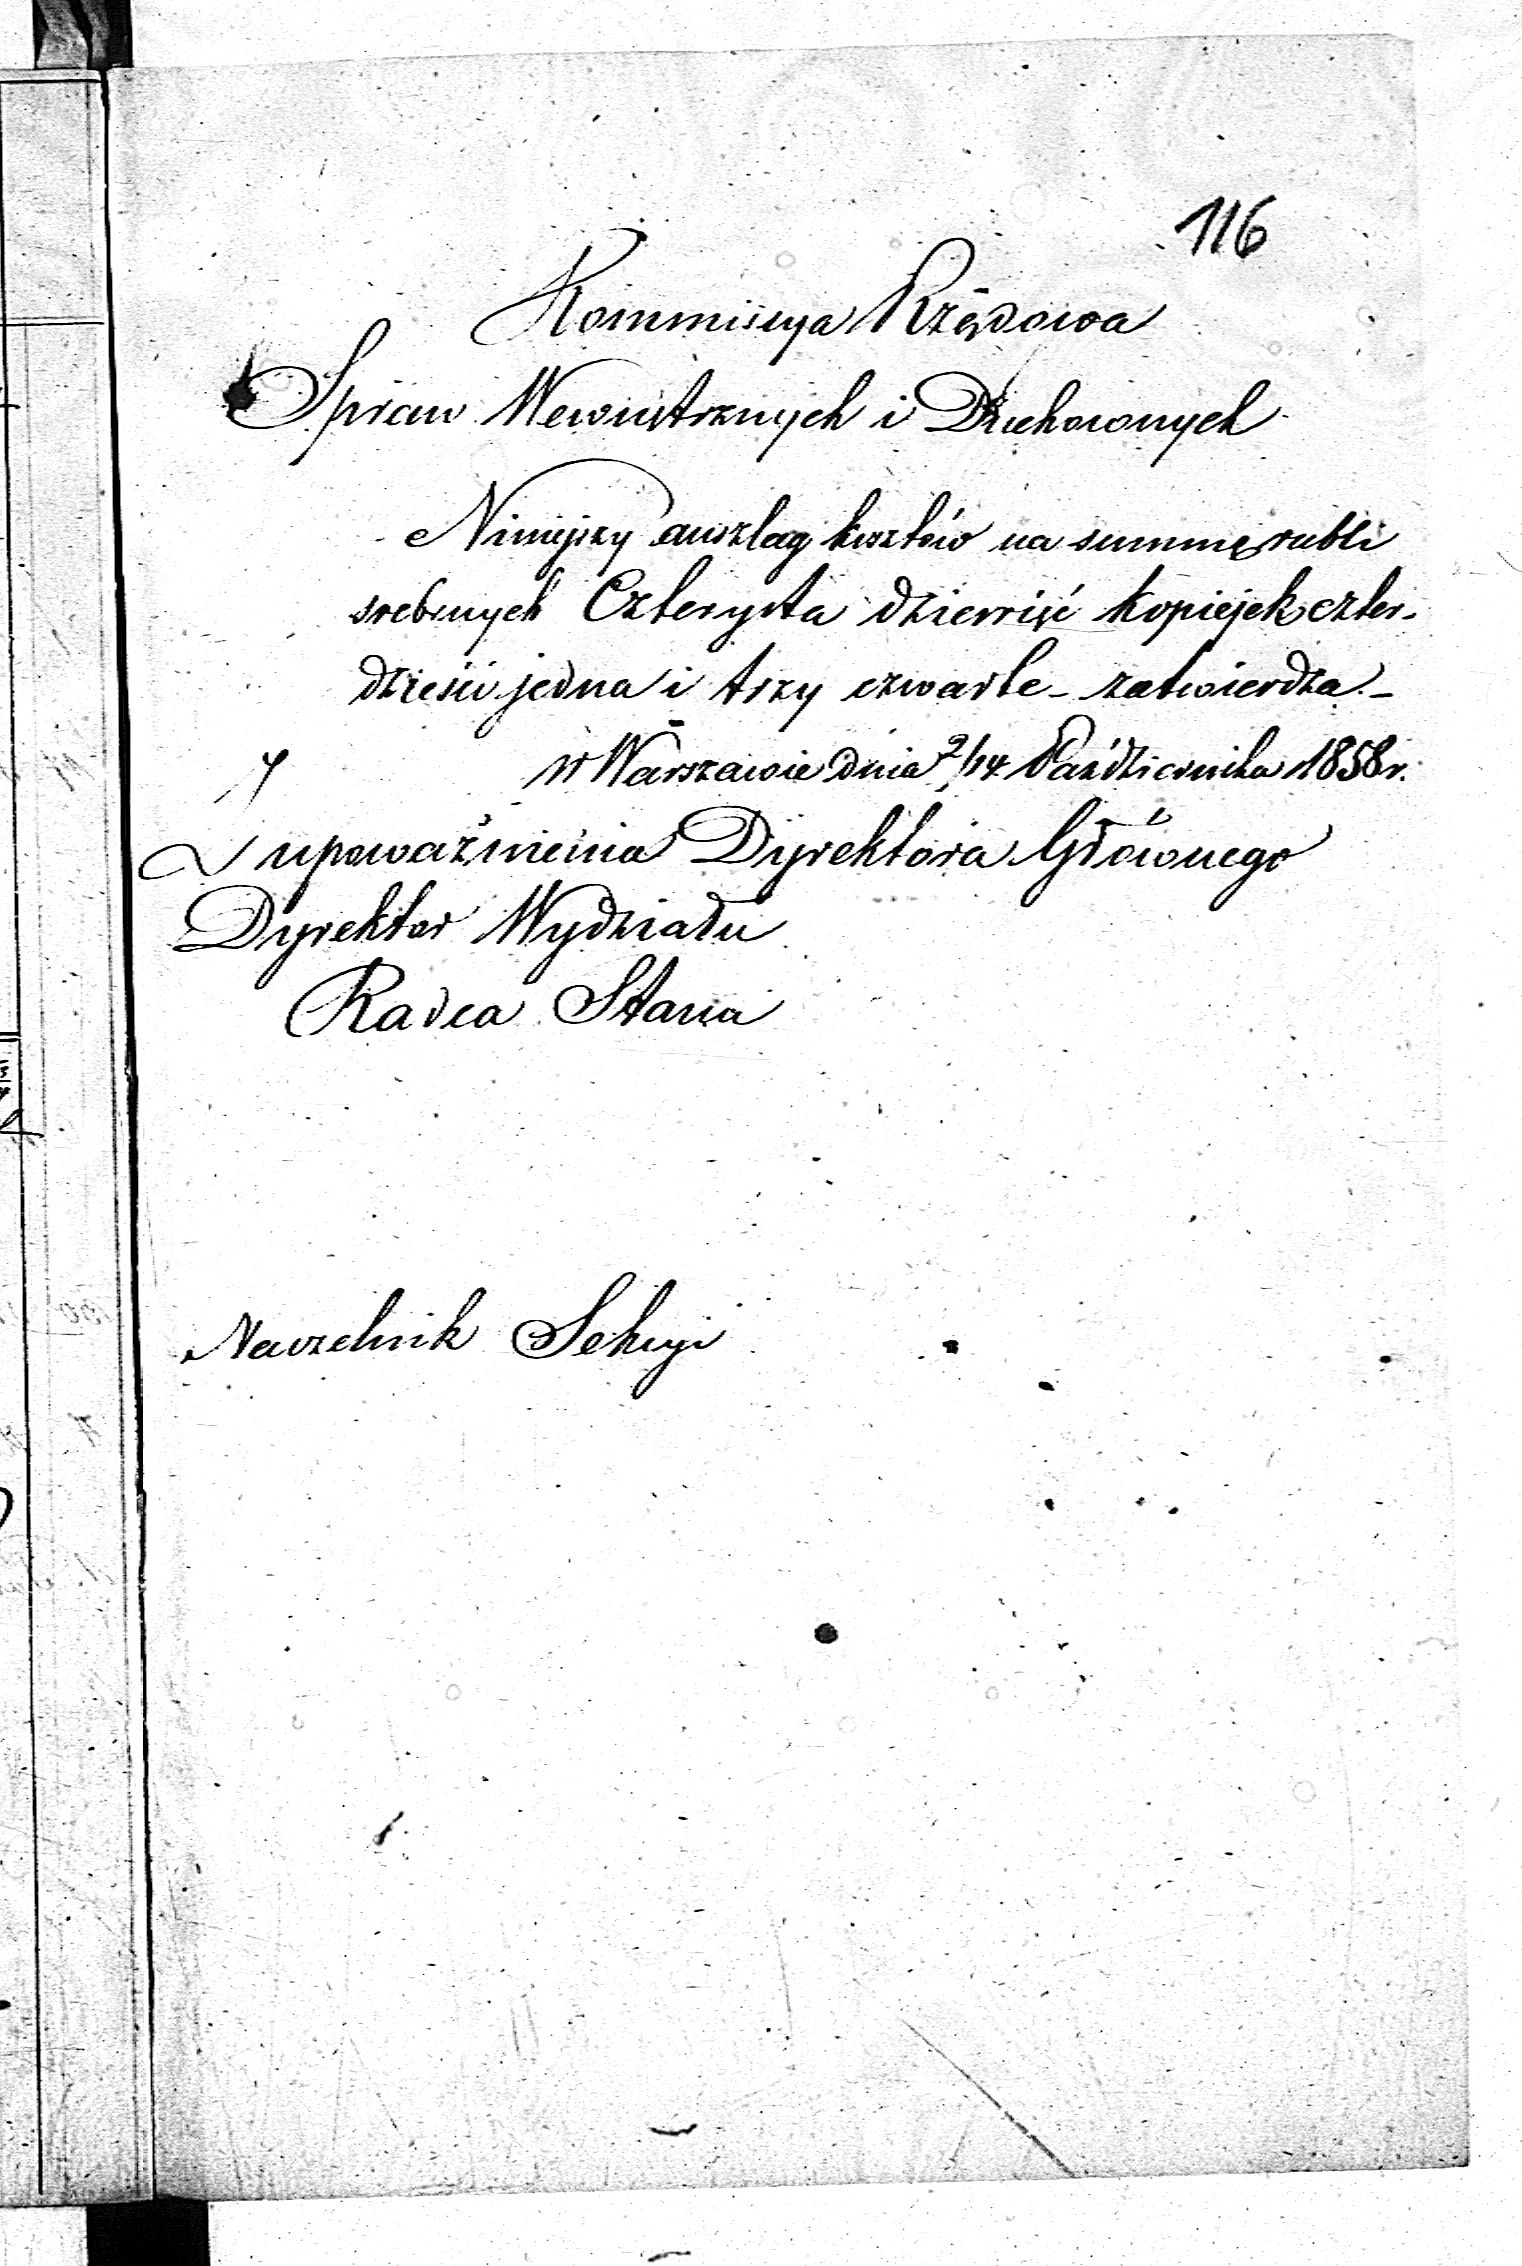 116
Kommissya Rządowa
Spraw Wewnętrznych i Duchownych
Niniejszy anszlag kosztów na summę rubli
srebrnych Czterysta dziewięć kopiejek czter-
dzieści jedna i trzy czwarte - zatwierdza. -
w Warszawie dnia 2/14 Października 1858 r.
Z upoważnienia Dyrektora Głównego
Dyrektor Wydziału
Radca Stanu
Naczelnik Sekcyi